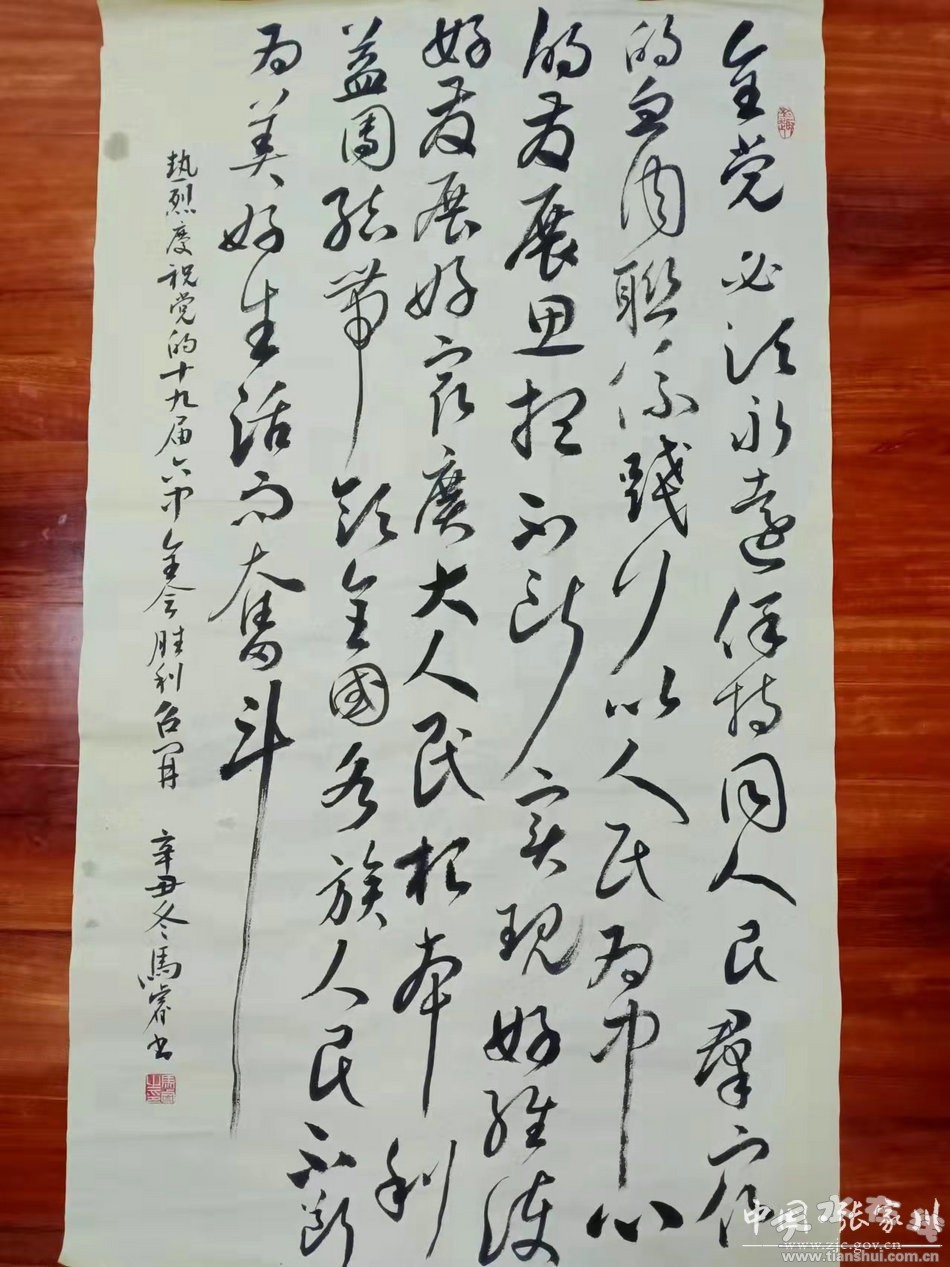 全党必须永遠保持同人民羣众
的血肉聯系踐行以人民为中心
的发展思想不断实现好維護
好发展好最廣大人民根本利
益團結带领全國各族人民不断
为美好生活而奮斗
熱烈慶祝党的十九届六中全会胜利召开 辛丑冬馬睿书
中国 张家川
www.zjc.gov.cn
www.tianshui.com.cn